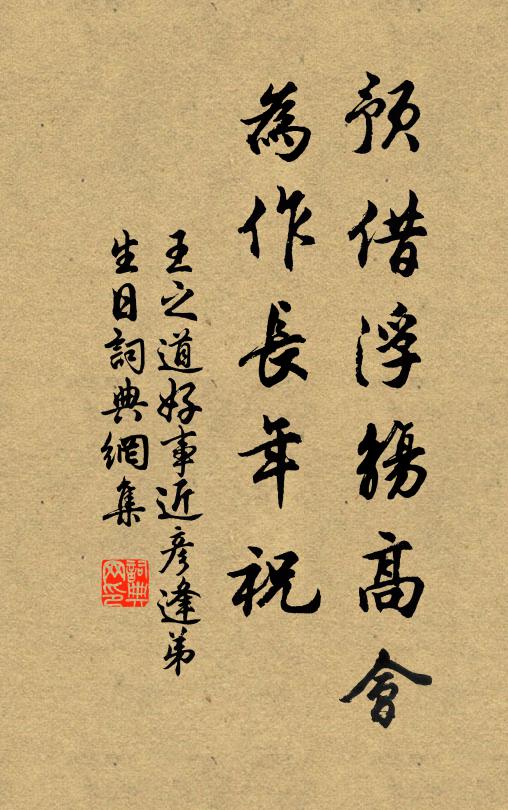 預借浮觴高會
為作長年祝
王之道好事近彥逢弟
生日詞典網集
詞典
网印